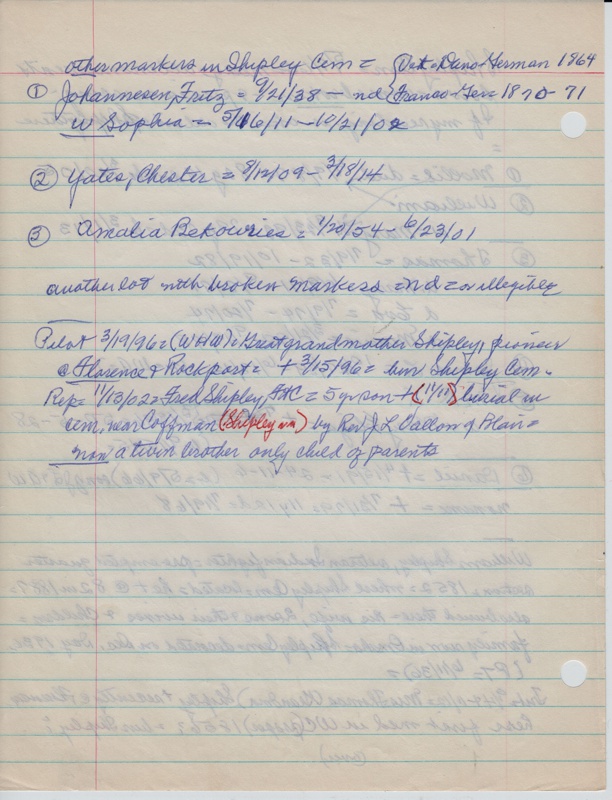 other markers in Shipley Cem = { Vet = Dano-German 1864
① Johannesen, Fritz = 9/21/38 — nd { Franco-Ger = 1870-71
W Sophia = 5/16/11 — 10/21/02
② Yates, Chester = 8/12/09 — 3/18/14
③ Amalia Bekouries = 1/20/54 — 6/23/01
another lot with broken markers = nd = or illegible
Pilot 3/19/96 = (WHW) = Great grandmother Shipley, pioneer
@ Florence & Rockport = + 3/15/96 = bur Shipley Cem =
Rep = 11/13/02 = Fred Shipley, F+C = 5 yr son + (11/11) burial in
cem, near Coffman (Shipley nn) by Rev J. L. Vallow of Blair =
now a twin brother only child of parents